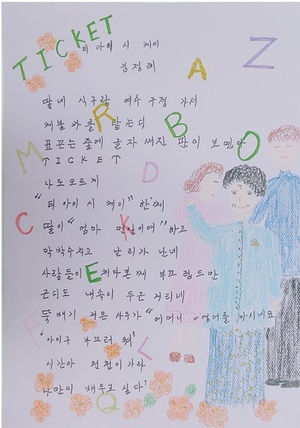 TICKET
티 아이 시 케이
김정례
딸네 식구랑 여수 구경 가서
표 끊는 줄에 글자 써진 판이 보였다
TICKET
나도 모르게
"티 아이 시 케이" 한께
딸이 "엄마 영어" 하고
막 박수치고 난리가 난네
사람들이 쳐다본께 부끄럽드만
근디도 내 속이 두근거리네
뚝배기 사우가 "어머니 영어를 아시네요"
'아이구 부끄러워'
시간아 천천히 가라
나만이 배우고 싶다'
A
Z
R
B
O
M
D
C
K
E
F
L
Q